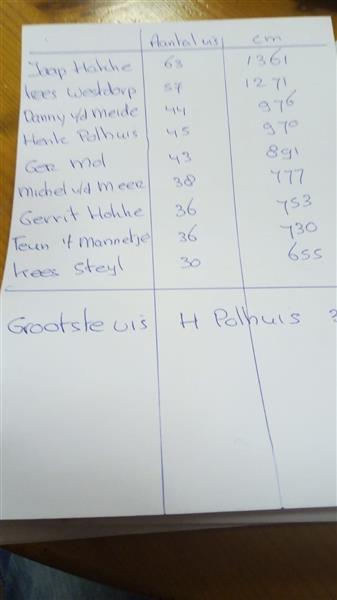 Aantal vis cm
Jaap Hokke 63 1361
Kees Westdorp 57 1271
Danny v/d Meide 44 976
Henk Polhuis 45 970
Ger Mol 43 891
Michel v/d Meer 38 777
Gerrit Hokke 36 753
Teun 't Mannetje 36 730
Kees Steyl 30 655
Grootste vis H Polhuis